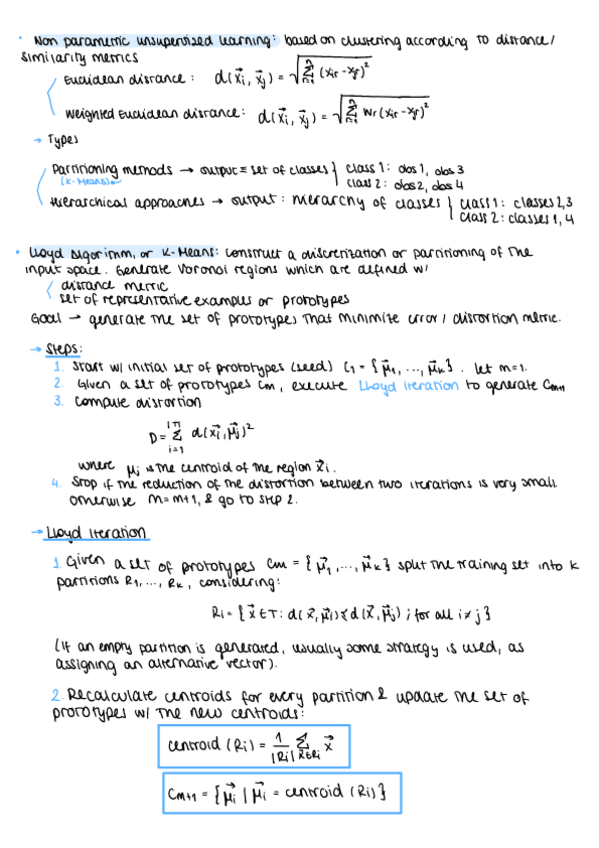 • Non parametric unsupervised learning: based on clustering according to distance/
similarity metrics
Euclidean distance: d(x⃗i, x⃗j) = √∑ⁿr=1 (xir - xjr)²
Weighted Euclidean distance: d(x⃗i, x⃗j) = √∑ⁿr=1 wr(xir - xjr)²
→ Types
Partitioning methods → output = set of classes } class 1: obs 1, obs 3
(K-Means) class 2: obs 2, obs 4
Hierarchical approaches → output: hierarchy of classes } class 1: classes 2,3
class 2: classes 1, 4
• Lloyd Algorithm, or K-Means: construct a discretization or partitioning of the
input space. Generate Voronoi regions which are defined w/
distance metric
set of representative examples or prototypes
Goal → generate the set of prototypes that minimize error/distortion metric.
→ Steps:
1. Start w/ initial set of prototypes (seed) C1 = {μ⃗1, ..., μ⃗k}. let m=1.
2. Given a set of prototypes Cm, execute Lloyd iteration to generate Cm+1
3. Compute distortion
D = ∑|T|i=1 d(x⃗i, μ⃗j)²
where μj is the centroid of the region x⃗i.
4. Stop if the reduction of the distortion between two iterations is very small.
otherwise m=m+1, & go to step 2.
→ Lloyd Iteration
1. Given a set of prototypes Cm = {μ⃗1, ..., μ⃗k} split the training set into k
partitions R1, ..., Rk, considering:
Ri = {x⃗ ∈ T: d(x⃗, μ⃗i) ≤ d(x⃗, μ⃗j); for all i ≠ j}
(If an empty partition is generated, usually some strategy is used, as
assigning an alternative vector).
2. Recalculate centroids for every partition & update the set of
prototypes w/ the new centroids:
centroid (Ri) = 1/|Ri| ∑x⃗∈Ri x⃗
Cm+1 = {μ⃗i | μ⃗i = centroid (Ri)}